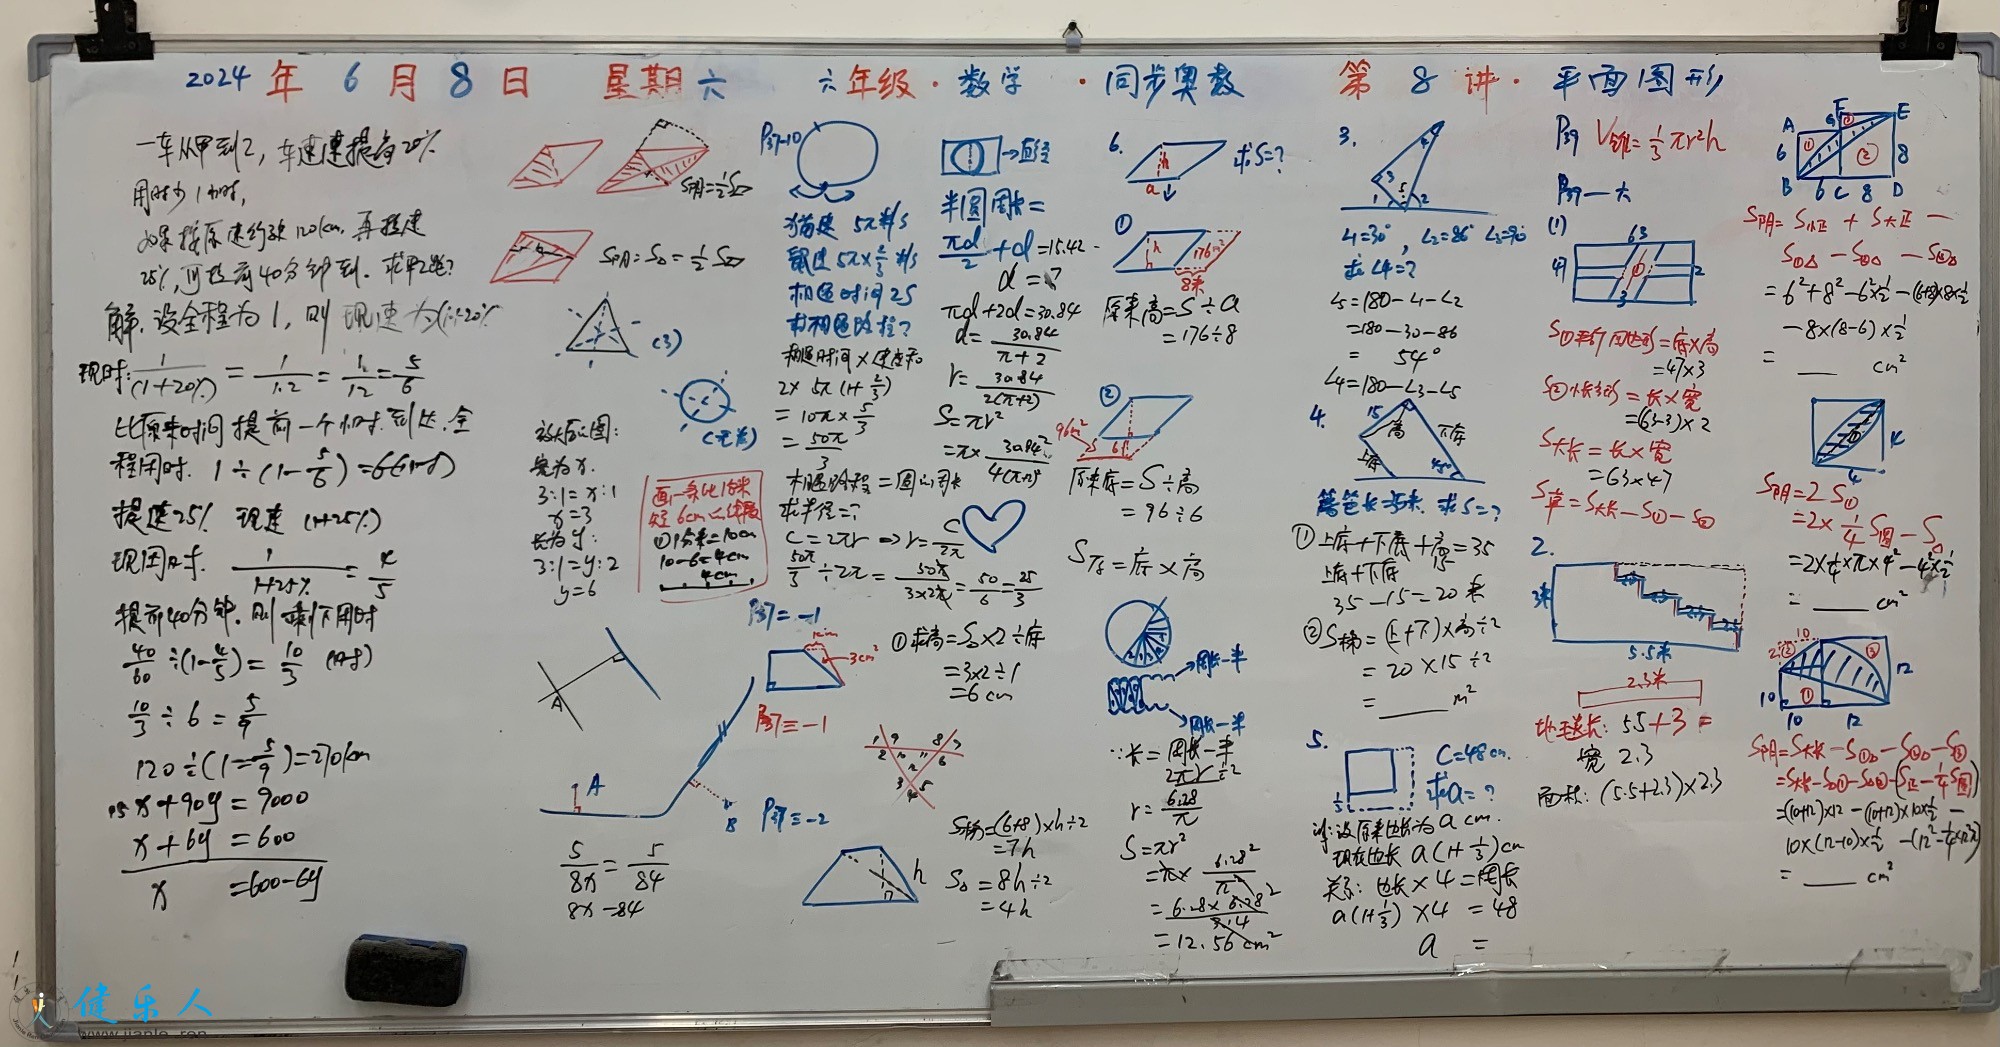 2024年6月8日 星期六 六年级·数学·同步奥数 第8讲·平面图形
一车从甲到乙,车速提高20%
用时少1小时,
如果按原速行驶120km,再提速
25%,可提前40分钟到.求甲乙路?
解,设全程为1,则现速为(1+20%
现时:1/(1+20%) = 1/1.2 = 1/12 = 5/6
比原来时间提前一个小时.到达.全
程用时. 1÷(1-5/6)=6(时)
提速25% 现速 (1+25%)
现因时. 1/1+25% = 4/5
提前40分钟.则剩下用时
40/60÷(1-4/5)=10/3 (时)
10/3÷6=5/9
120÷(1-5/9)=270km
15x+90y=9000
x+6y=600
x =600-6y
S阴=½S
S阴=S△=½S
(3)
(无数)
放大后图:
宽为x.
3:1=x:1
x=3
长为y:
3:1=y:2
y=6
画一条比1分米
短6cm的线段
①1分米=10cm
10-6=4cm
4cm
A
A
B
5/8x=5/84
8x=84
P37-10
猫速 5π米/s
鼠速5π×2/3米/s
相遇时间2S
求相遇路程?
相遇时间×速度和
2×5π(1+2/3)
=10π×5/3
=50π/3
相遇路程=圆的周长
求半径=?
C=2πr ⇒ r=C/2π
50π/3÷2π=50π/3×2π=50/6=25/3
P37=-1
1cm
3cm²
①求高=S×2÷底
=3×2÷1
=6cm
P37三-1
1 9 8 7
2 10 12 6
11
3 5
4
P37三-2
h
S梯=(6+8)×h÷2
=7h
S△=8h÷2
=4h
→直径
半圆周长=
πd/2+d=15.42
d=?
πd+2d=30.84
d=30.84/π+2
r=30.84/2(π+2)
S=πr²
=π×30.84²/4(π+2)²
6.
h
a
求S=?
①
h
176m²
8米
原来高=S÷a
=176÷8
②
96m²
6
原来底=S÷高
=96÷6
S原=底×高
→周长一半
→周长一半
∵长=周长一半
2πr÷2
r=6.28/π
S=πr²
=π×6.28²/π²
=6.28×6.28²/3.14
=12.56cm²
3.
4
3
5
1 2
∠1=30°,∠2=86° ∠3=90°
求∠4=?
∠5=180-∠1-∠2
=180-30-86
= 54°
∠4=180-∠3-∠5
4.
15
高
下底
上底
45°
篱笆长35米.求S=?
①上底+下底+高=35
15
上底+下底
35-15=20米
②S梯=(上+下)×高÷2
=20×15÷2
=____m²
5.
C=48cm.
求a=?
1/3
解:设原来边长为a cm.
现在边长 a(1+1/3)cm
关系:边长×4=周长
a(1+1/3)×4=48
a =
P39 V锥=⅓πr²h
P39一大
(1)
63
47
①
2
3
S①平行四边形=底×高
=47×3
S②小长方形=长×宽
=(63-3)×2
S大长=长×宽
=63×47
S草=S大长-S①-S②
2.
3米
5.5米
2.3米
地毯长:5.5+3=
宽 2.3
面积:(5.5+2.3)×2.3
A
F
E
G
①
②
③
6
8
B 6 C 8 D
S阴=S小正+S大正-
S①△-S②△-S③△
=6²+8²-6²×½-(6+8)×8×½
-8×(8-6)×½
=____cm²
①
4
4
S阴=2S①
=2×¼S圆-S△
=2×¼×π×4²-4²×½
=____cm²
10
2
②
③
12
10
①
10 12
S阴=S大长-S①△-S②△-S③
=S大长-S①-S②-(S正-¼S圆)
=(10+12)×12-(10+12)×10×½-
10×(12-10)×½-(12²-¼×12²π)
=____cm²
健乐人
www.jianle.ren